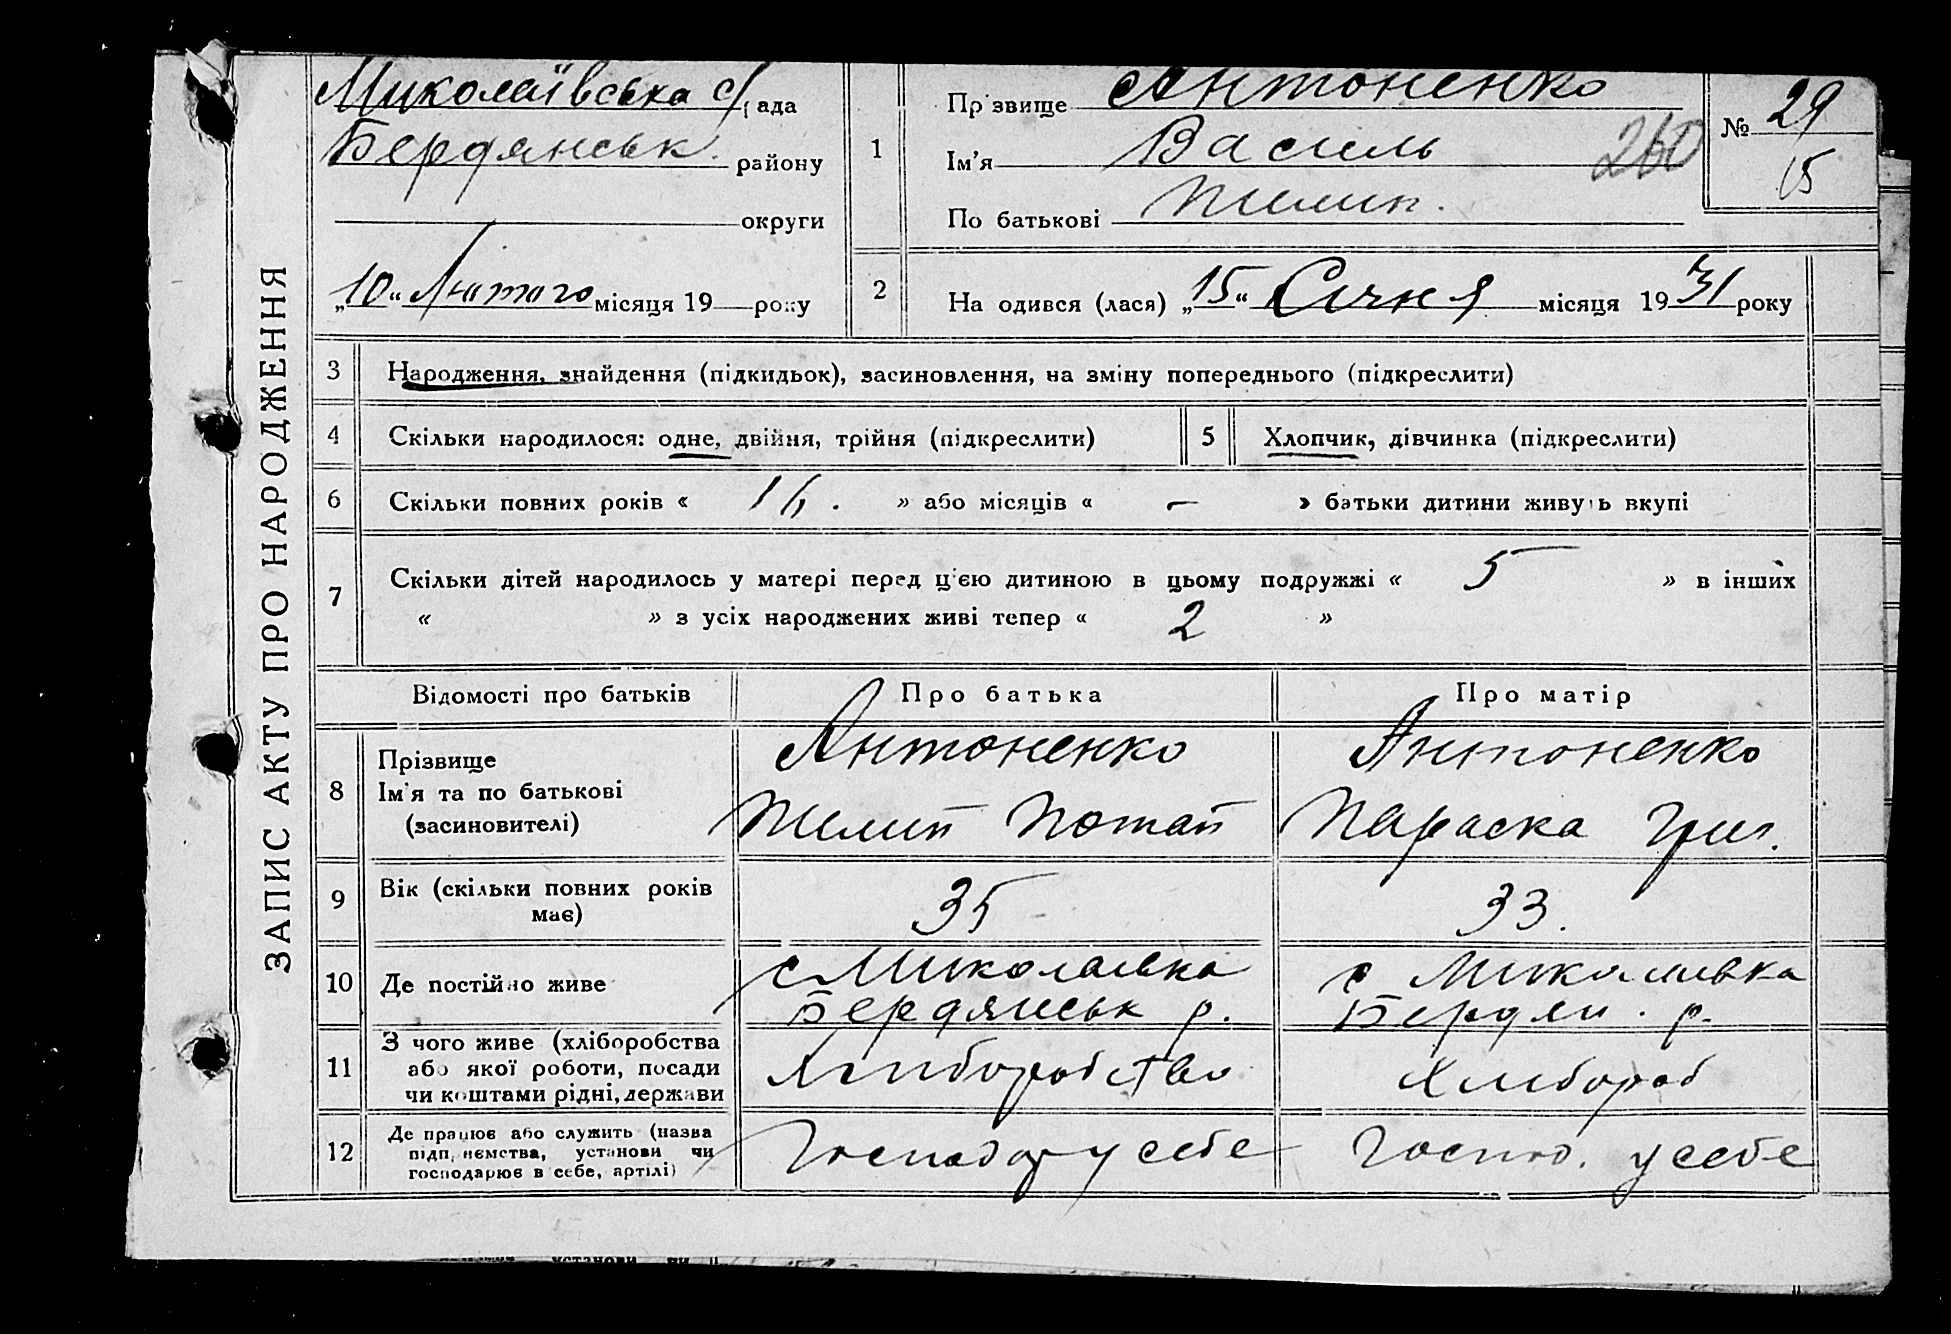 ЗАПИС АКТУ ПРО НАРОДЖЕННЯ
Миколаївська с/рада
Бердянськ району
округи
„10“ Лютого місяця 19 року
1
Прізвище Антоненко
Ім’я Василь
По батькові Пилип.
260
№ 29
15
2
На одився (лася) „15“ Січня місяця 1931 року
3 Народження, знайдення (підкидьок), засиновлення, на зміну попереднього (підкреслити)
4 Скільки народилося: одне, двійня, трійня (підкреслити) 5 Хлопчик, дівчинка (підкреслити)
6 Скільки повних років « » або місяців « – » батьки дитини живуть вкупі
7 Скільки дітей народилось у матері перед цією дитиною в цьому подружжі « 5 » в інших
« » з усіх народжених живі тепер « 2 »
Відомості про батьків Про батька Про матір
8 Прізвище
Ім’я та по батькові
(засиновителі)
Антоненко
Пилип Потап
Антоненко
Параска Григ.
9 Вік (скільки повних років
має)
35
33.
10 Де постійно живе
с Миколаївка
Бердянськ р.
с Миколаївка
Бердян. р.
11 З чого живе (хліборобства
або якої роботи, посади
чи коштами рідні, держави
Хліборобство
Хлібороб
12 Де працює або служить (назва
підприємства, установи чи
господарює в себе, артілі)
Господар у себе
Господ. у себе
установи чи